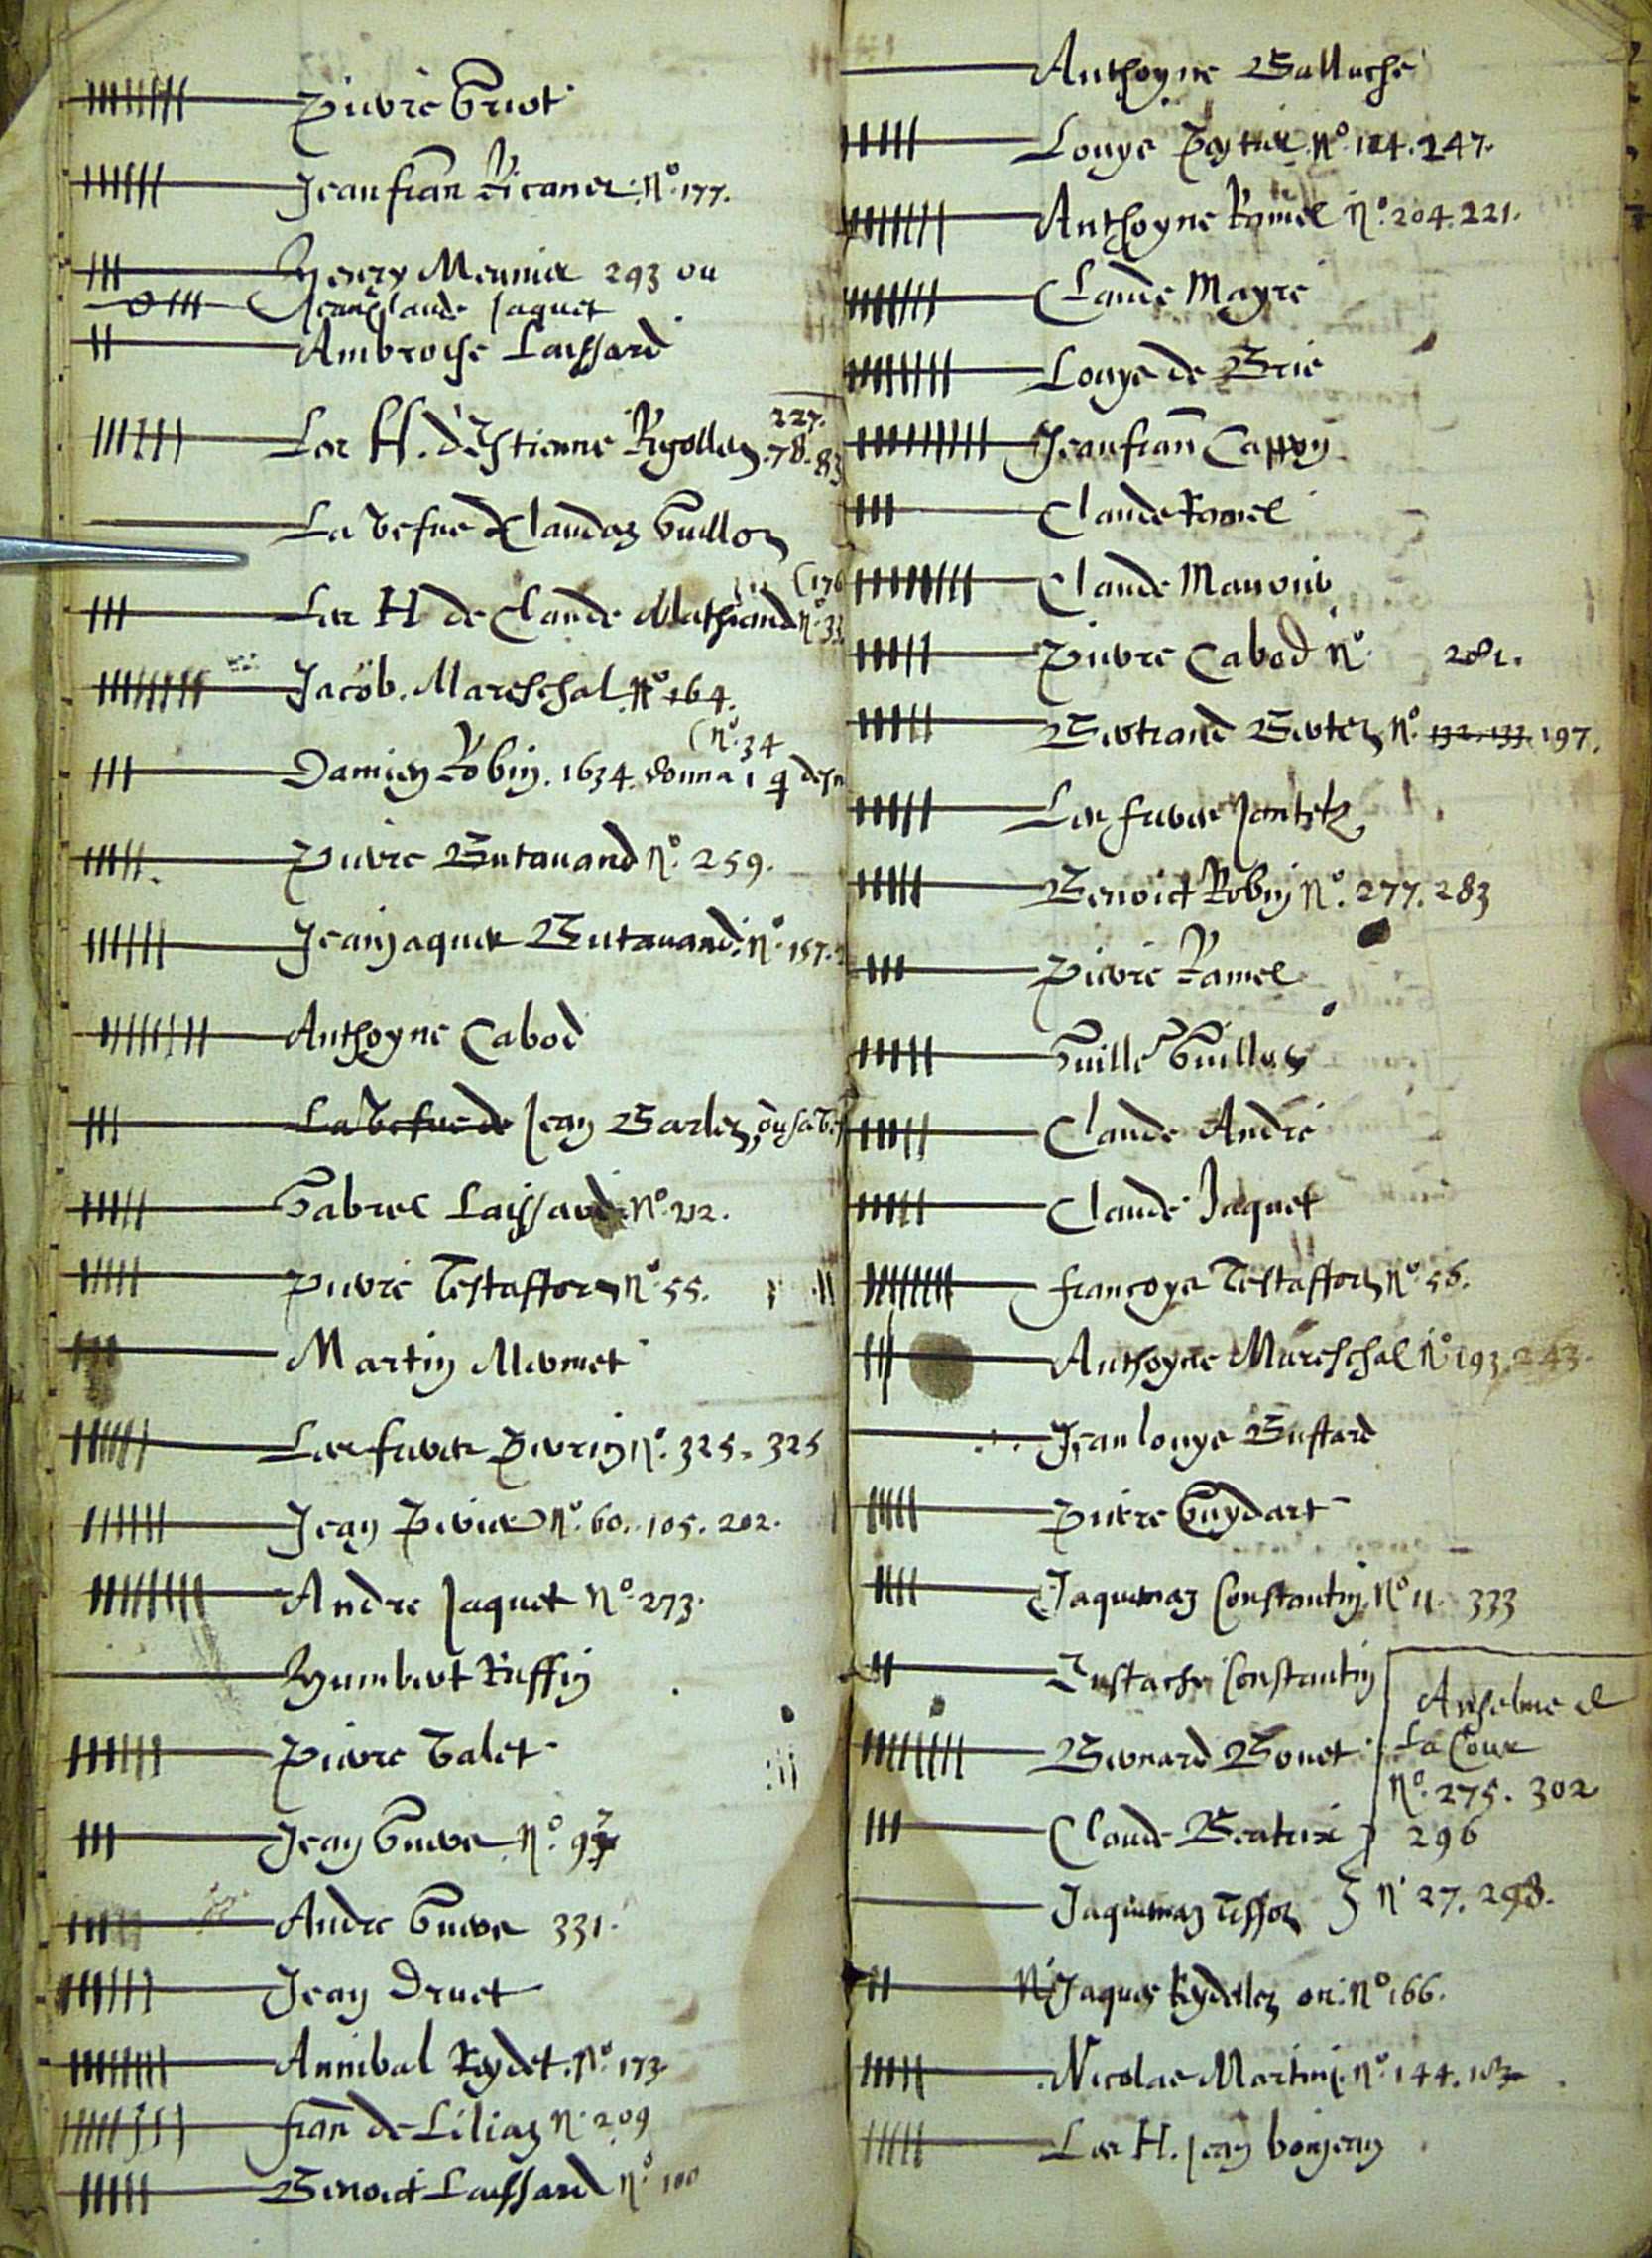 Pierre Griot
Jeanfran Ricaner. N° 177.
Henry Meunier 293 ou
Jeanclaude Jaquet
Ambroise Laissard
227.
Les H. d'Estienne Rigollez. 78. 83
La vefue de Claudaz Guillon
(176
Les H de Claude Mathiand N° 33
Jacob. Mareschal. N° 164.
(N° 34
Damien Robin. 1634. donna 1
Pierre Butauand N° 259.
Jeanjaques Butauand. N° 157.
Anthoyne Cabod
La vefue de Jean Barlez, ou sa vef
Gabriel Laissard. N° 212.
Pierre Testaffort N° 55.
Martin Mermet
Les freres Perrin N° 325. 325
Jean Perier N° 60. 105. 202.
Andre Jaquet N° 273.
Humbert Ruffin
Pierre Valet
Jean Guers N° 97
Andre Guers 331.
Jean Druet
Annibal Reydet. N° 173.
fran de Liliaz N° 209
Benoict Laissard N° 100
Anthoyne Balluche
Louys Peytier N° 124. 247.
Anthoyne Ramel N° 204. 221.
Claude Mayre
Louys de Brie
Jeanfran Cappon
Claude Ramel
Claude Mauoub
Pierre Cabod N° 281.
Bertrand Bertez N° 132. 133. 197.
Les freres Jantetz
Benoict Robin N° 277. 283
Pierre Ramel
Guille Guillon
Claude Andre
Claude Jaquet
francoys Testaffort N° 56.
Anthoyne Mareschal N° 193. 243.
Jean louys Bustard
Pierre Guydart
Jaquemaz Constantin. N° 11. 333
Eustache Constantin
Anselme de
La Cour
N° 275. 302
Bernard Bonet
Claude Beatrix } 296
Jaquemaz Teffot } N° 27. 298.
Jaques Reydellez on. N° 166.
Nicolas Martin. N° 144.
Les H. Jean bonjean